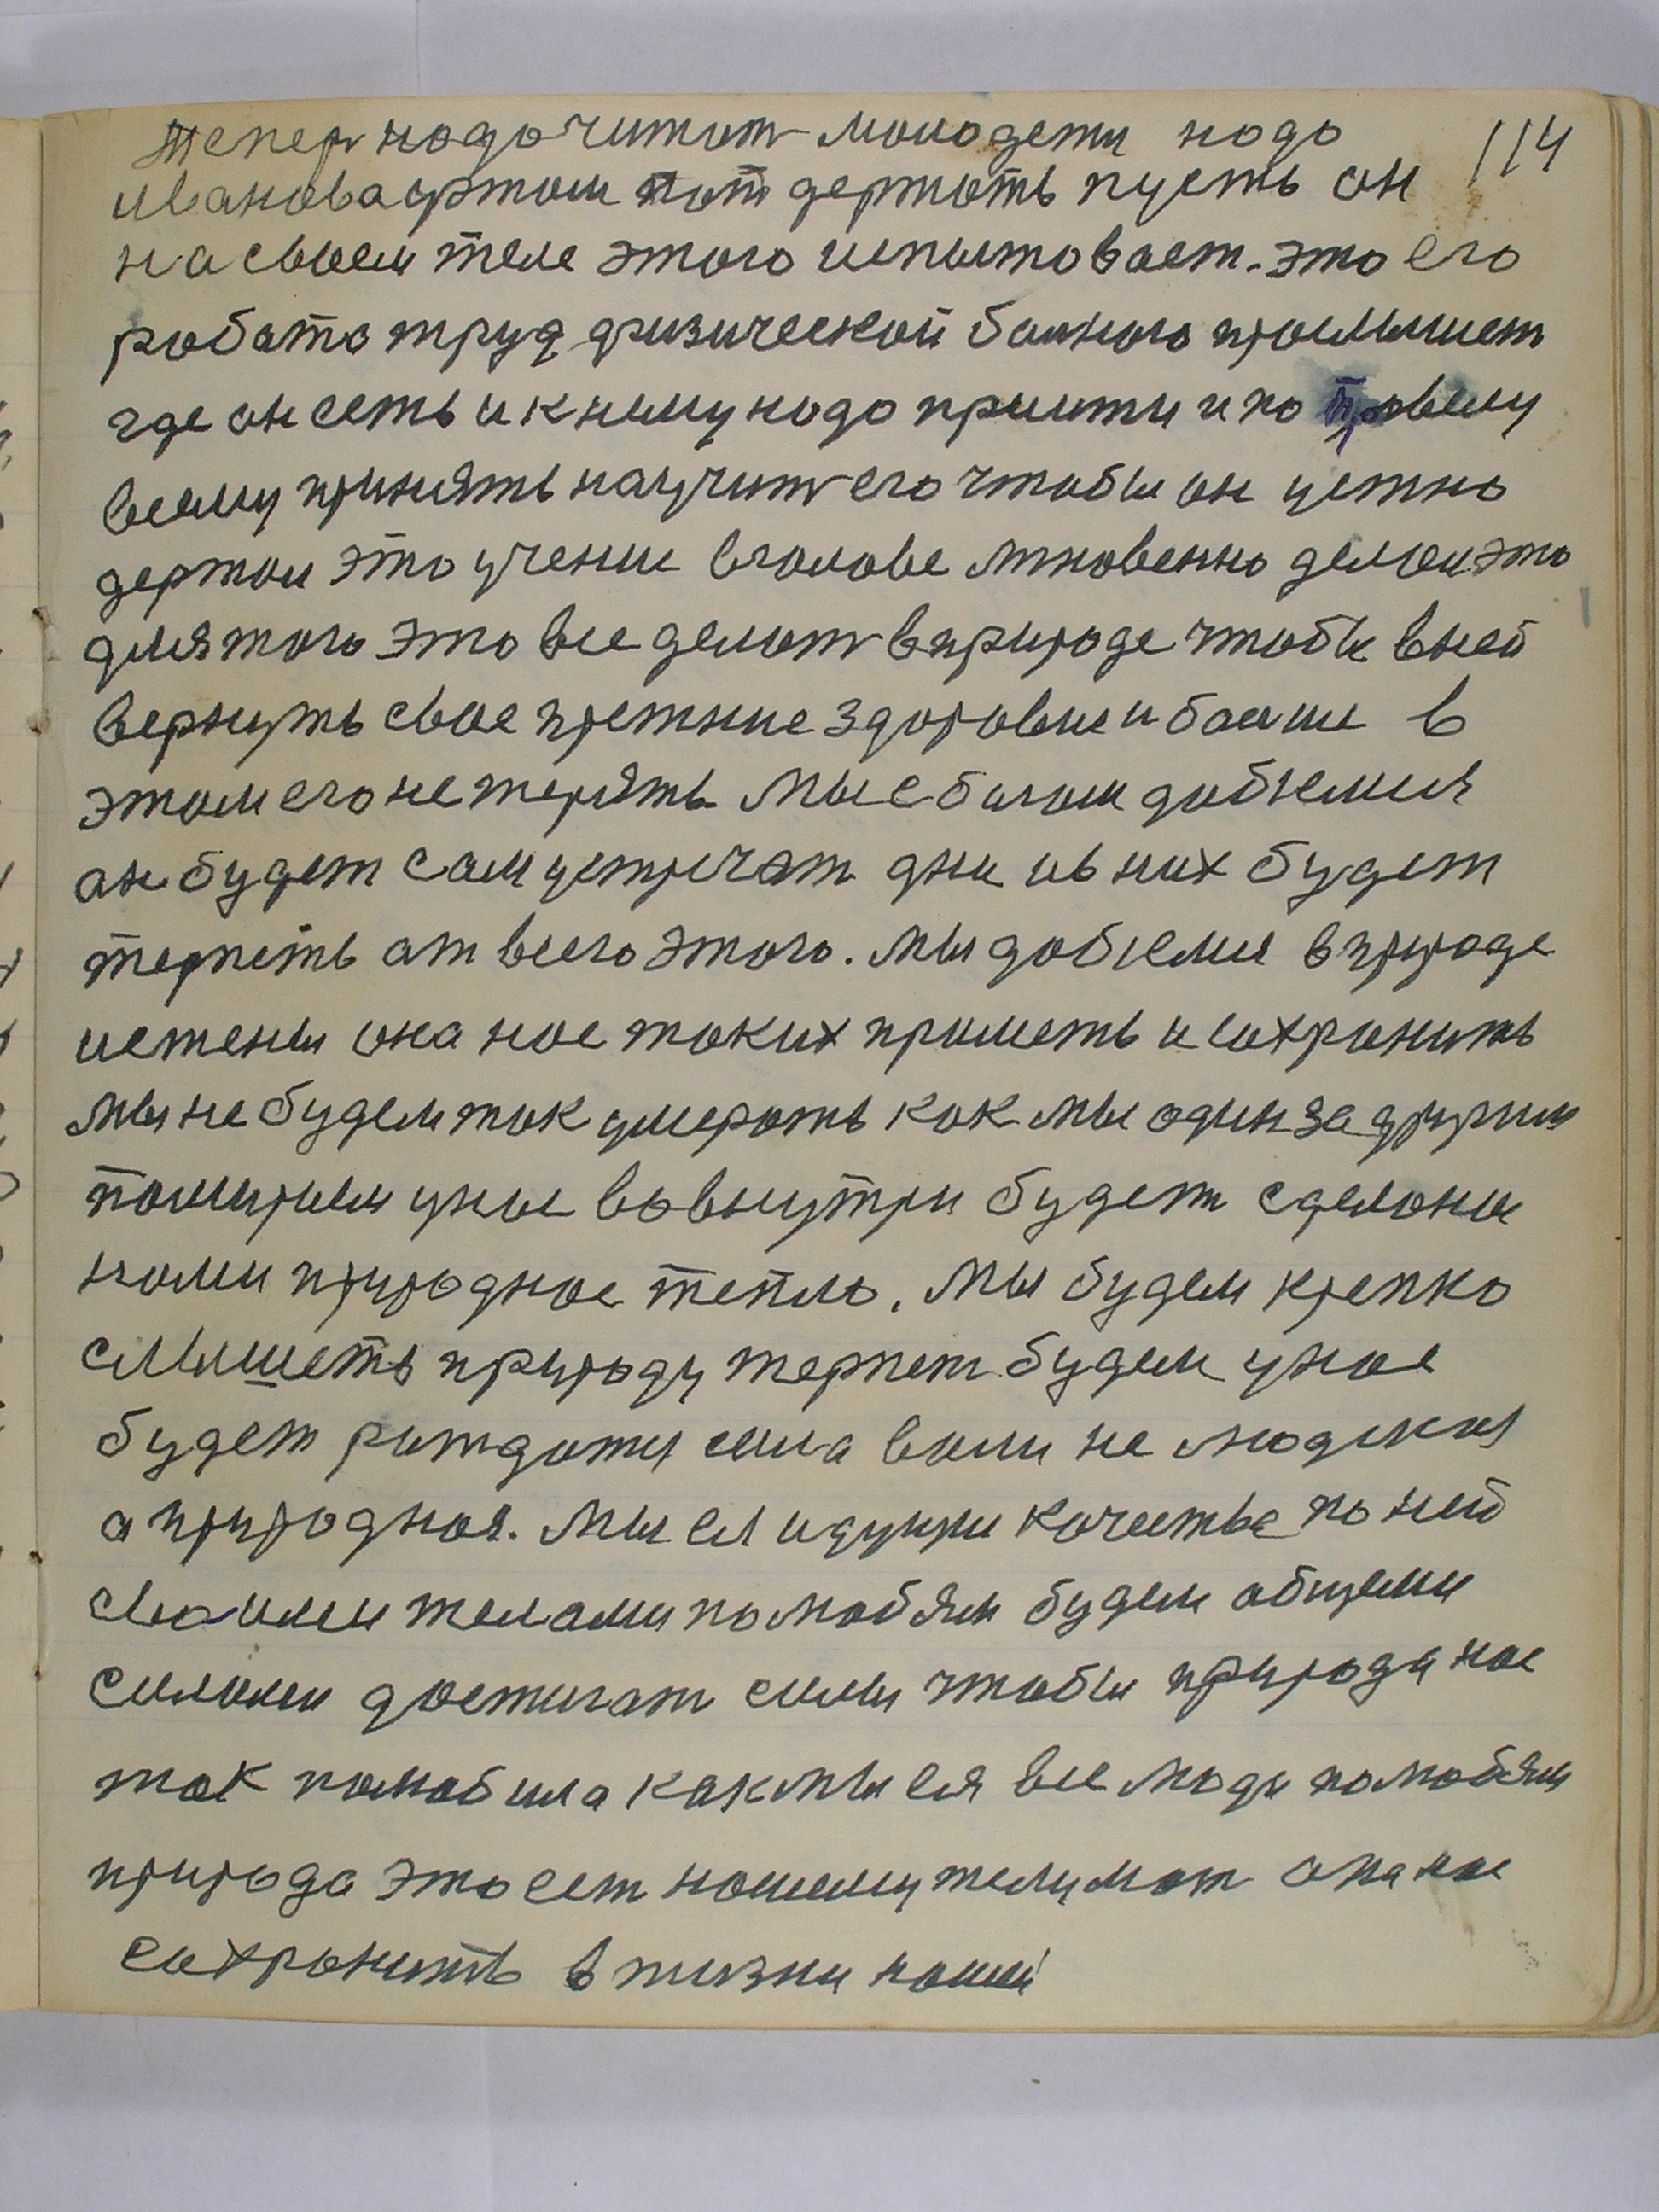 тепер надо читат молодежи надо 114
иванова фтом пот держать пусть он
на своем теле этого испытовает. это его
работа труд физической больного промышлет
где он есть и к нему надо прийти и по правему
всему принять научит его чтобы он устно
держал это учение в голове мгновенно делал это
для того это все делат в природе чтобы в ней
вернуть свое прежние здоровие и больше в
этом его не терять мы с богом добемся
он будет сам устречат дни и в них будет
терпеть от всего этого. мы добемся в природе
истены она нас таких приметь и сохранить
мы не будем так умерать как мы один за другим
помираем у нас вовнутри будет сделана
нами природное тепло. мы будем крепко
слышеть природу терпет будем у нас
будет рождатся сила воли не людская
а природная. мы ея идущи качества по ней
своими телами полюбям будем общеми
силами достигат силы чтобы природа нас
так полюбила как мы ея все люди полюбям
природа это ест нашему телу мат она нас
сохранить в жизни нашей